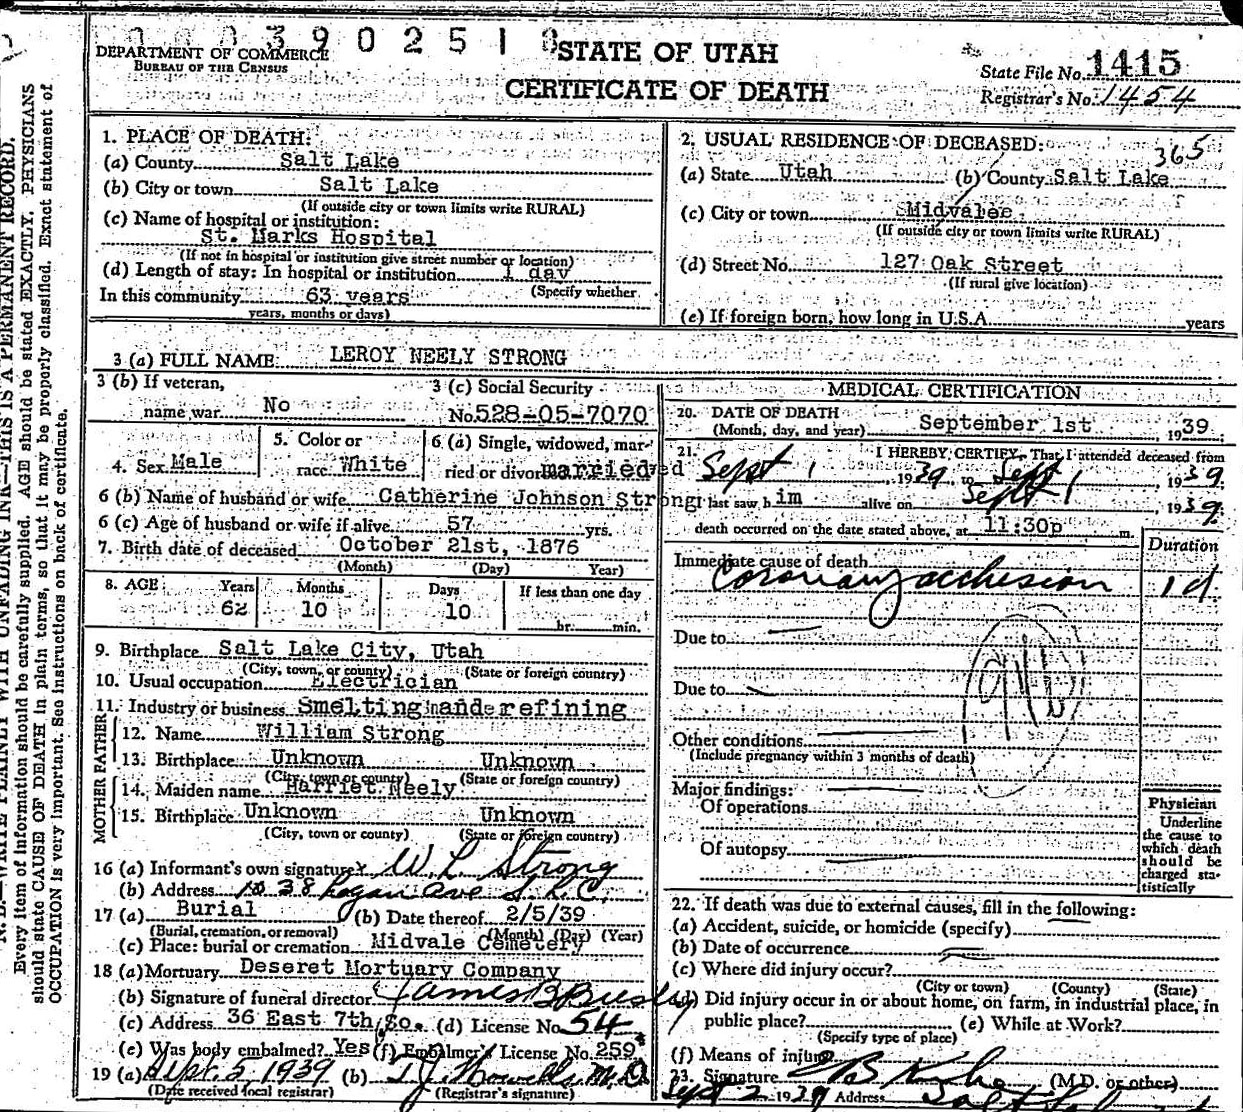 0003902510
DEPARTMENT OF COMMERCE
BUREAU OF THE CENSUS
STATE OF UTAH
CERTIFICATE OF DEATH
State File No. 1415
Registrar's No. 1454
N. B.—WRITE PLAINLY WITH UNFADING INK—THIS IS A PERMANENT RECORD.
Every item of information should be carefully supplied. AGE should be stated EXACTLY. PHYSICIANS
should state CAUSE OF DEATH in plain terms, so that it may be properly classified. Exact statement of
OCCUPATION is very important. See instructions on back of certificate.
1. PLACE OF DEATH:
(a) County Salt Lake
(b) City or town Salt Lake
(If outside city or town limits write RURAL)
(c) Name of hospital or institution:
St. Marks Hospital
(If not in hospital or institution give street number or location)
(d) Length of stay: In hospital or institution 1 day
(Specify whether
In this community 63 years
years, months or days)
2. USUAL RESIDENCE OF DECEASED:
365
(a) State Utah (b) County Salt Lake
(c) City or town Midvalee
(If outside city or town limits write RURAL)
(d) Street No. 127 Oak Street
(If rural give location)
(e) If foreign born, how long in U.S.A. years
3 (a) FULL NAME LEROY NEELY STRONG
3 (b) If veteran,
name war No
3 (c) Social Security
No. 528-05-7070
4. Sex Male
5. Color or
race White
6 (a) Single, widowed, mar-
ried or divorced married
6 (b) Name of husband or wife Catherine Johnson Strong
6 (c) Age of husband or wife if alive 57 yrs.
7. Birth date of deceased October 21st, 1876
(Month) (Day) Year)
8. AGE Years Months Days If less than one day
62 10 10 hr. min.
9. Birthplace Salt Lake City, Utah
(City, town, or county) (State or foreign country)
10. Usual occupation Electrician
11. Industry or business Smelting and refining
FATHER
12. Name William Strong
13. Birthplace Unknown Unknown
(City, town or county) (State or foreign country)
MOTHER
14. Maiden name Harriet Neely
15. Birthplace Unknown Unknown
(City, town or county) (State or foreign country)
16 (a) Informant's own signature x W. L. Strong
(b) Address 1038 Logan Ave S.L.C.
17 (a) Burial (b) Date thereof 2/5/39
(Burial, cremation, or removal) (Month) (Day) (Year)
(c) Place: burial or cremation Midvale Cemetery
18 (a) Mortuary Deseret Mortuary Company
(b) Signature of funeral director James B
(c) Address 36 East 7th So. (d) License No. 54
(e) Was body embalmed? Yes (f) Embalmer's License No. 259
19 (a) Sept. 5 1939 (b) T. J. Howells M.D.
(Date received local registrar) (Registrar's signature)
MEDICAL CERTIFICATION
20. DATE OF DEATH
(Month, day, and year) September 1st 1939
21. I HEREBY CERTIFY, That I attended deceased from
Sept 1, 1939 to Sept 1939
I last saw him alive on Sept 1, 1939
death occurred on the date stated above, at 11:30p m.
Duration
Immediate cause of death
Coronary occlusion 1 d.
Due to
Due to
Other conditions
(Include pregnancy within 3 months of death)
Major findings:
Of operations
Of autopsy
Physician
Underline
the cause to
which death
should be
charged sta-
tistically
22. If death was due to external causes, fill in the following:
(a) Accident, suicide, or homicide (specify)
(b) Date of occurrence
(c) Where did injury occur?
(City or town) (County) (State)
(d) Did injury occur in or about home, on farm, in industrial place, in
public place? (e) While at Work?
(Specify type of place)
(f) Means of injury
23. Signature (M.D. or other)
Sept 2 1939 Address